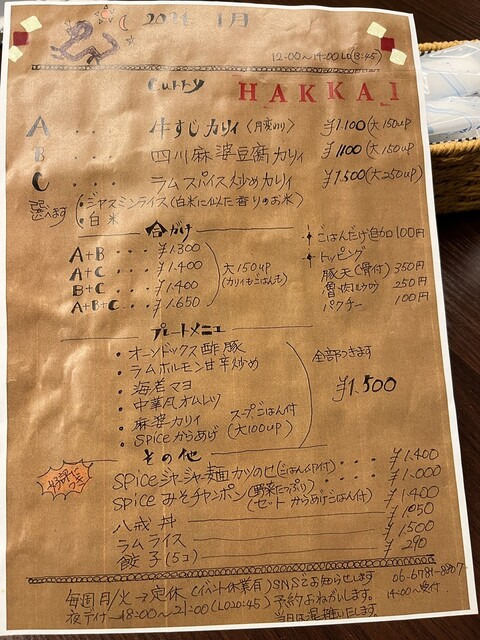 2024 1月
12:00〜14:00 LO(13:45)
Curry HAKKAI
A ... 牛すじカリィ (月変わり) ¥1.100 (大150up
B ... 四川麻婆豆腐カリィ ¥1100 (大150up
C ... ラムスパイス炒めカリィ ¥1.500 (大250up)
選べます ・ジャスミンライス(白米に似た香りのお米)
・白米
合がけ
A+B ... ¥1.300
A+C ... ¥1.400
B+C ... ¥1.400
A+B+C ... ¥1.650
大150up
(カリィもごはんも)
ごはんだけ追加100円
トッピング
豚天(骨付) 350円
250円
パクチー 100円
プレートメニュー
・オーソドックス酢豚
・ラムホルモン甘辛炒め
・海老マヨ
・中華風オムレツ
・麻婆カリィ
・spiceからあげ
スープごはん付
(大100up)
全部つきます
¥1.500
その他
好評につき
spiceジャージャー麺 (ごはん付) ... ¥1.400
spiceみそチャンポン (野菜たっぷり) ... ¥1.000
(セット からあげごはん付) ¥1400
八戒丼 ¥1050
ラムライス ¥1.500
餃子(5コ) ¥290
毎週月/火→定休 (イベント休業有) SNSでお知らせします
夜テイナー18:00〜21:00(LO20:45) 予約おねがいします。
当日は混雑いたします。
06-6781-8807
14:00〜受付